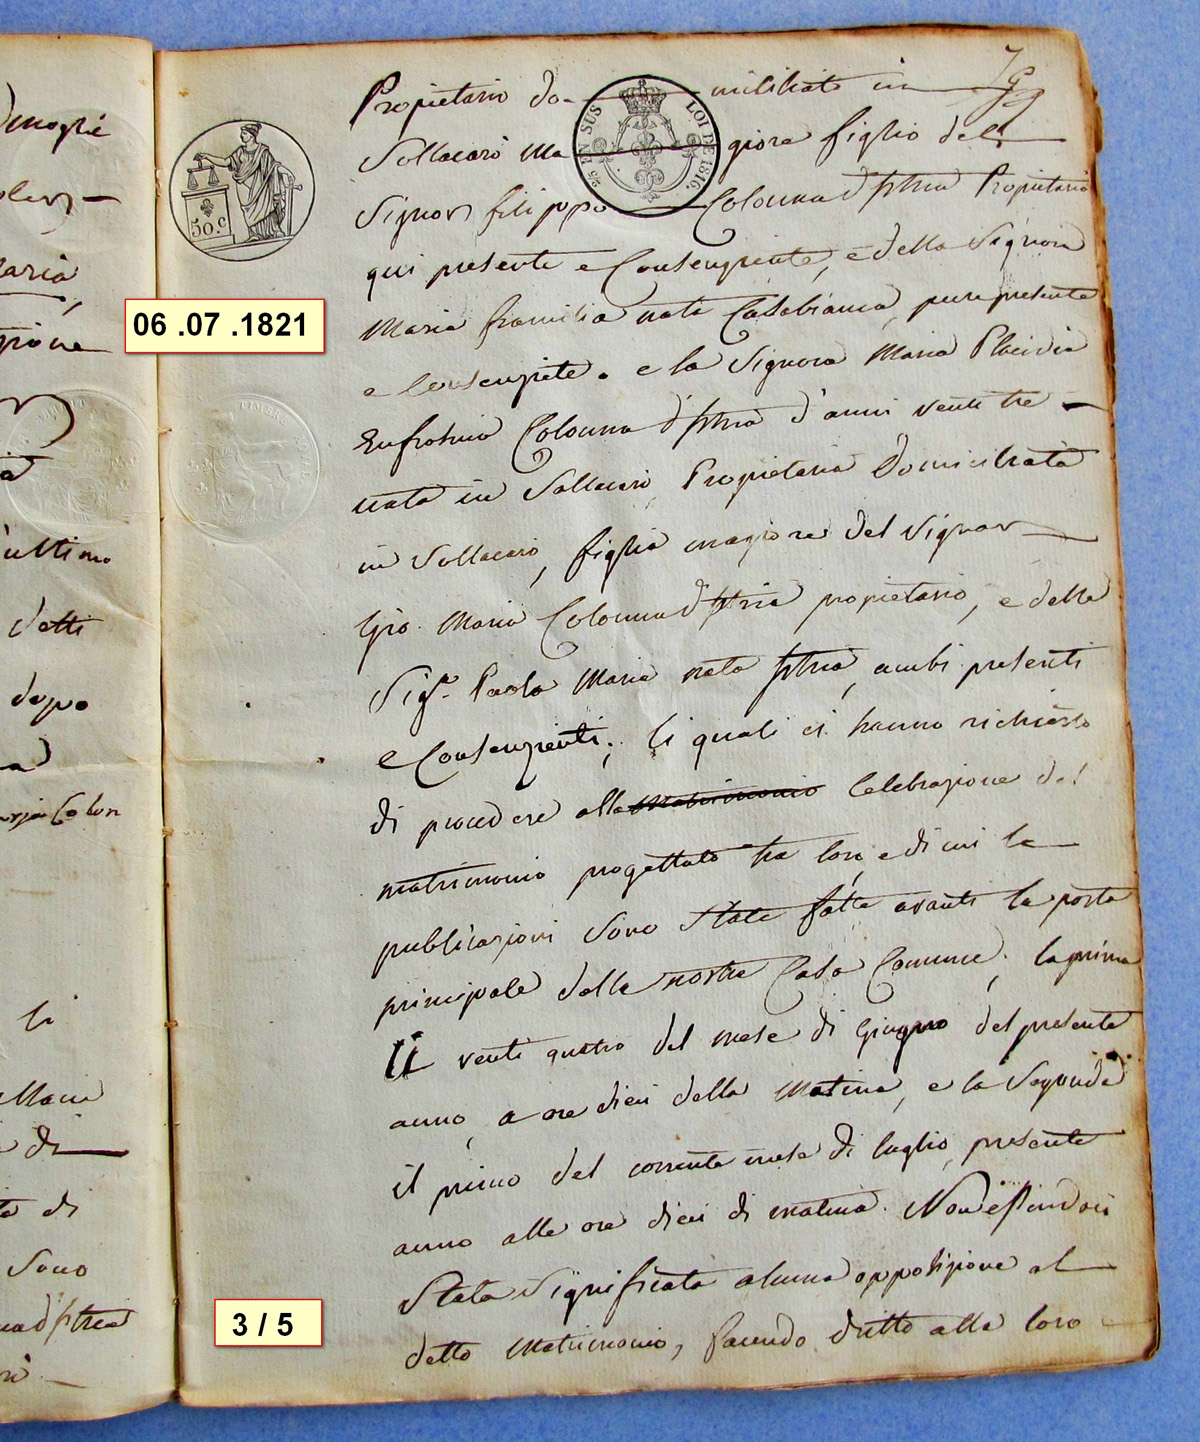 Propietario do- miciliato in
Sollacarò ma giore figlio del
Signor filippo Colonna d'Istria Propietario
qui presente e Consenziente, e della Signora
Maria framilia nata Casabianca, pure presente
e Consenziete. e la Signora Maria Placidia
Eufrosina Colonna d'Istria d'anni venti tre
nata in Sollacarò Propietaria Domiciliata
in Sollacarò, figlia magiore del Signor
Gio. Maria Colonna d'Istria propietario, e della
Sig.ra Paola Maria nata Istria, ambi presenti
e Consenzienti; li quali ci hanno richiesto
di procedere alla matrimonio Celebrazione del
matrimonio progettato tra loro, e di cui le
publicazioni sono State fatte avanti la porta
principale della nostra Casa Comune; la prima
Il venti quatro del mese di Giugno del presente
anno, a ore dieci della Matina, e la Segonda
il primo del corrente mese di luglio, presente
anno alle ore dieci di matina. Non essendoci
Stata Significata alcuna opposizione al
detto Matrimonio, facendo dritto alla loro
50.c
25 EN SUS LOI DE 1816.
TIMBRE
06 .07 .1821
3 / 5
dmoglie
aria
zione
ultimo
detti
dopo
Colon
li
Maria
di
di
Sono
d'Istria